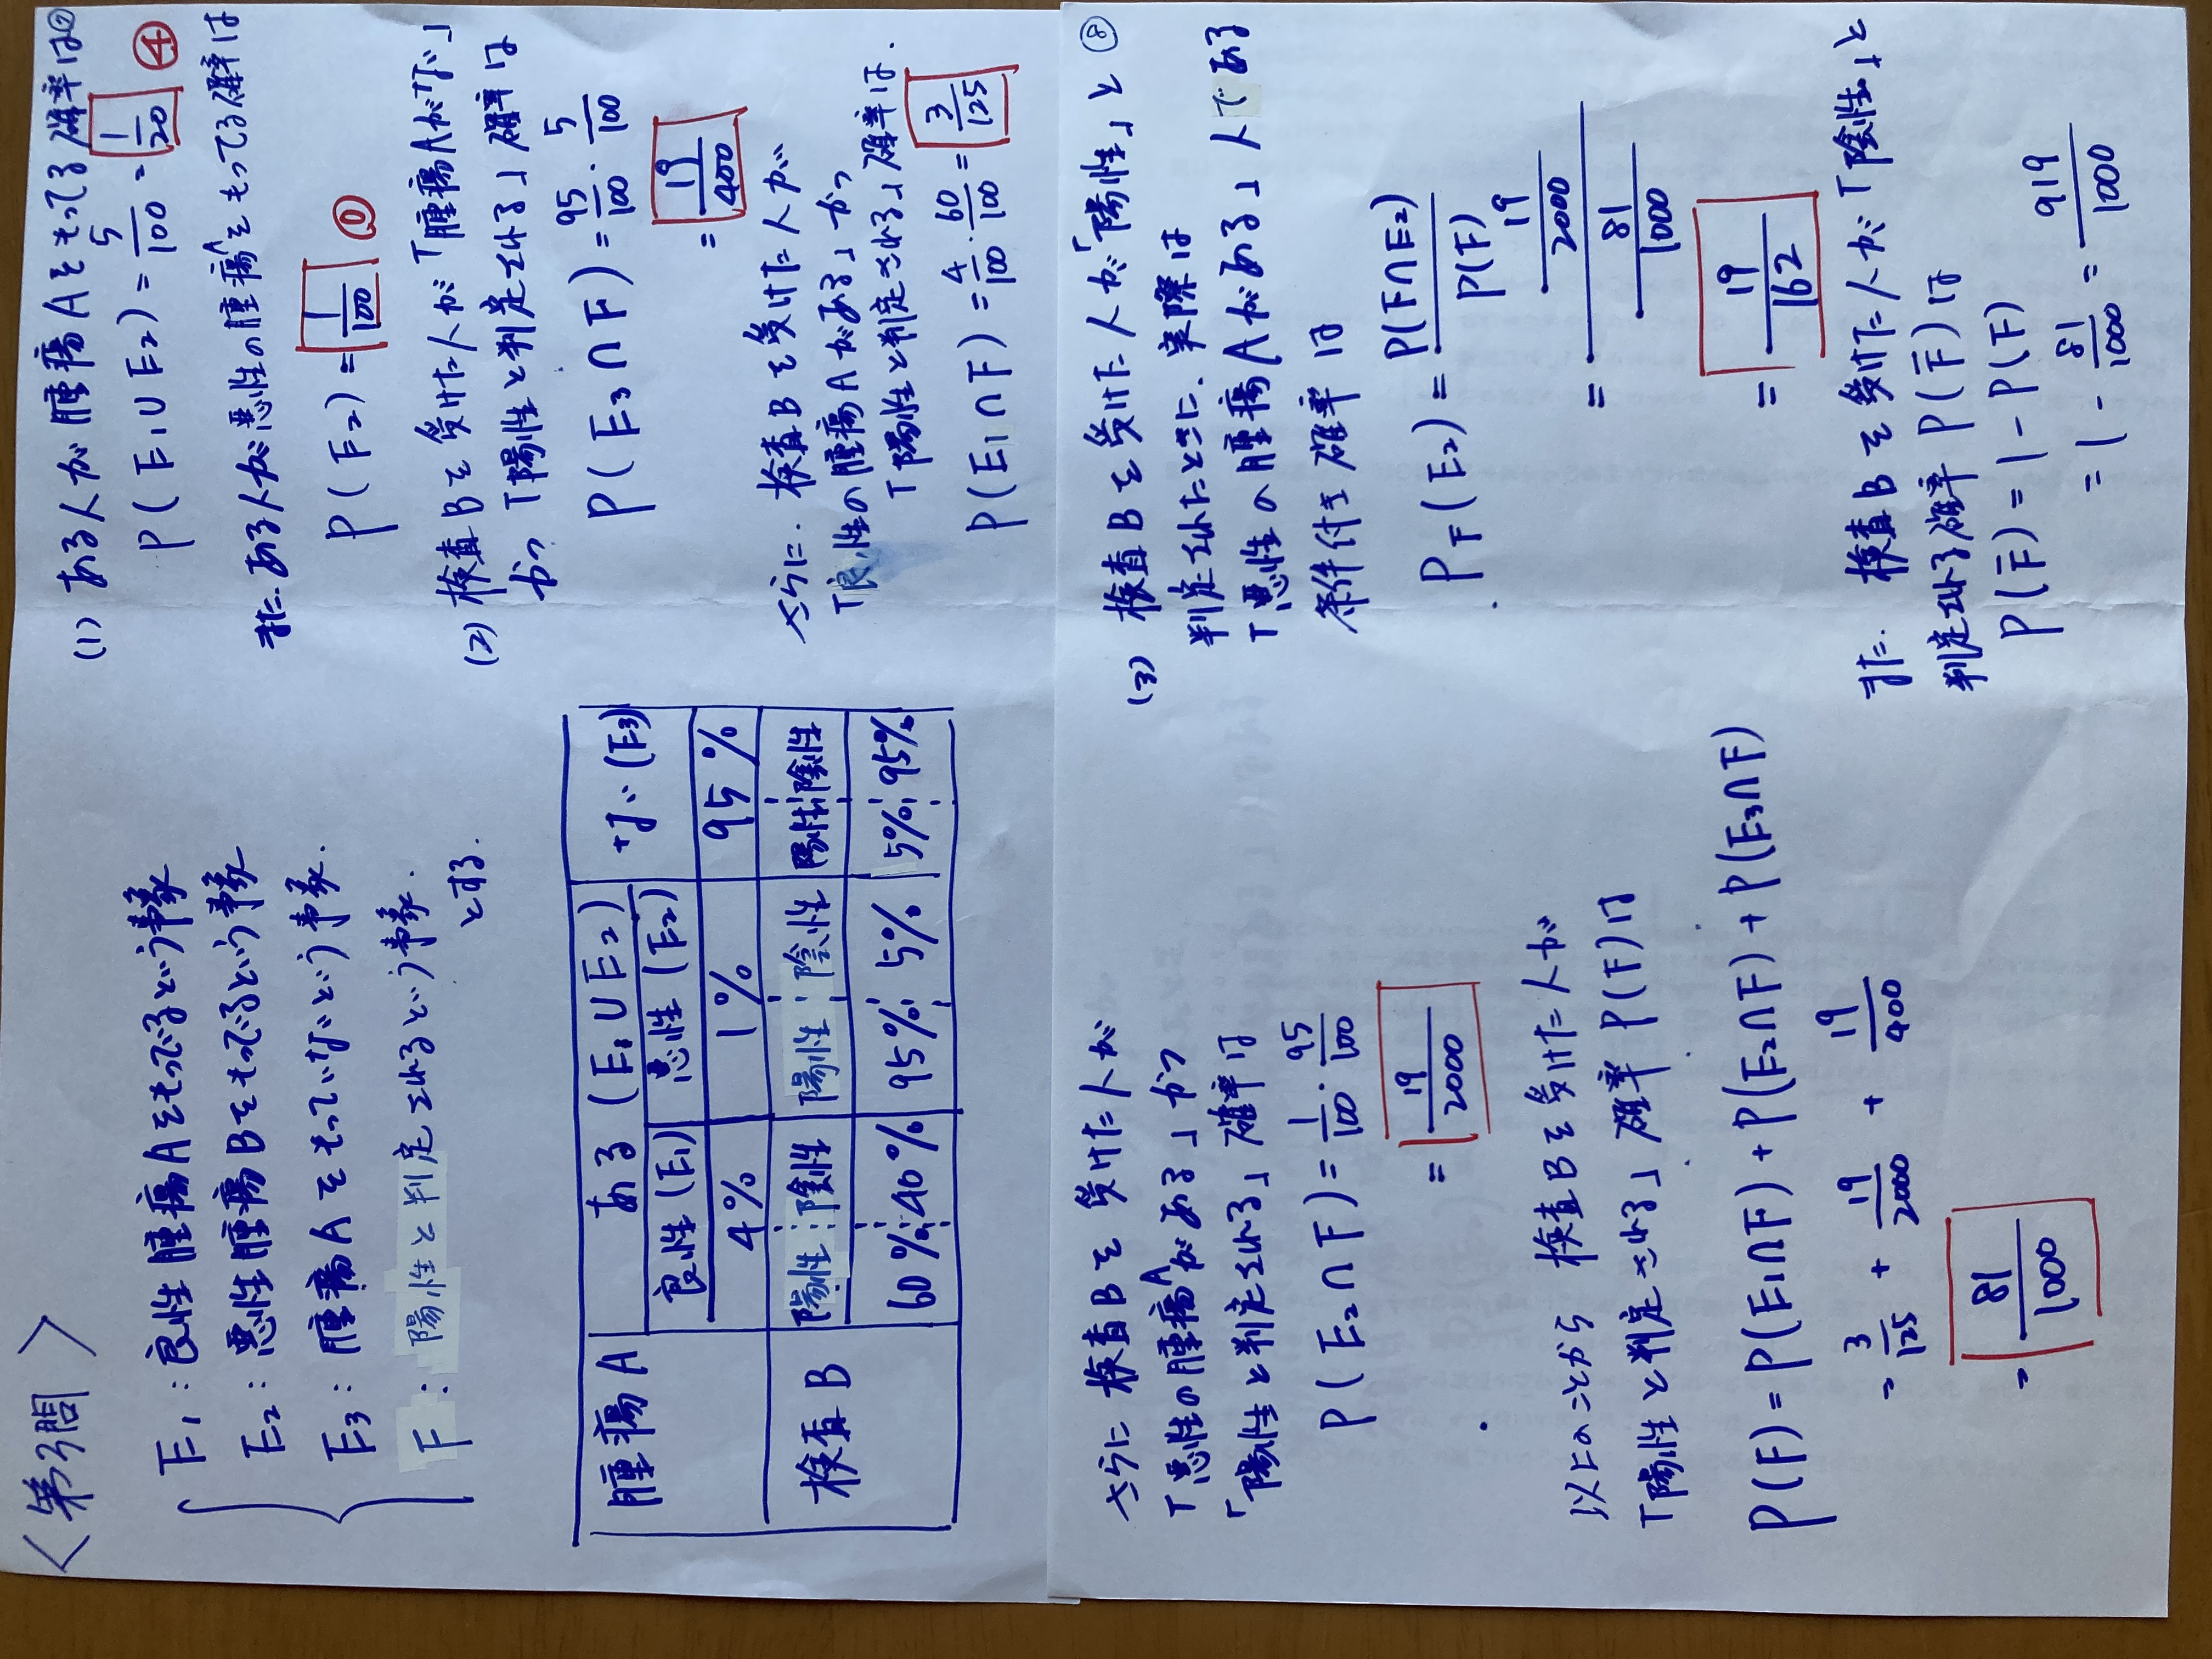 <第3問>
E₁：良性腫瘍Aをもってるという事象
E₂：悪性腫瘍Bをもってるという事象
E₃：腫瘍Aをもっていないという事象.
F：陽性と判定されるという事象.
とする.
腫瘍A ある (E₁∪E₂) ない (E₃)
良性 (E₁) 悪性 (E₂)
4% 1% 95%
検査B 陽性 陰性 陽性 陰性 陽性 陰性
60% 40% 95% 5% 5% 95%
(1) ある人が腫瘍Aをもってる確率は
P(E₁∪E₂) = 5/100 = 1/20 ④
また、ある人が悪性の腫瘍Aをもってる確率は
P(E₂) = 1/100 ⓪
(2) 検査Bを受けた人が「腫瘍Aがない」
かつ「陽性と判定される」確率は
P(E₃∩F) = 95/100 · 5/100
= 19/400
さらに、検査Bを受けた人が
「良性の腫瘍Aがある」かつ
「陽性と判定される」確率は.
P(E₁∩F) = 4/100 · 60/100 = 3/125
さらに検査Bを受けた人が
「悪性の腫瘍Aがある」かつ
「陽性と判定される」確率は
P(E₂∩F) = 1/100 · 95/100
= 19/2000
以上のことから 検査Bを受けた人が
「陽性と判定される」確率P(F)は
P(F) = P(E₁∩F) + P(E₂∩F) + P(E₃∩F)
= 3/125 + 19/2000 + 19/400
= 81/1000
⑧
(3) 検査Bを受けた人が「陽性」と
判定されたときに、実際は
「悪性の腫瘍Aがある」人である
条件付き確率は
P_F(E₂) = P(F∩E₂)/P(F)
= (19/2000)/(81/1000)
= 19/162
また、検査Bを受けた人が「陰性」と
判定される確率P(F̄)は
P(F̄) = 1 - P(F)
= 1 - 81/1000 = 919/1000